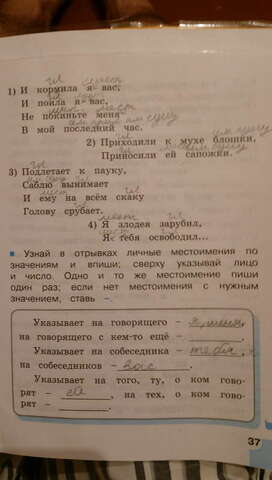 1) И кормила я вас,
И поила я вас,
Не покиньте меня
В мой последний час.
2) Приходили к мухе блошки,
Приносили ей сапожки.
3) Подлетает к пауку,
Саблю вынимает
И ему на всём скаку
Голову срубает.
4) Я злодея зарубил,
Я тебя освободил...
Узнай в отрывках личные местоимения по
значениям и впиши; сверху указывай лицо
и число. Одно и то же местоимение пиши
один раз; если нет местоимения с нужным
значением, ставь –.
Указывает на говорящего –
на говорящего с кем-то ещё –
Указывает на собеседника – тебя,
на собеседников – вас.
Указывает на того, ту, о ком гово-
рят –, на тех, о ком гово-
рят –
37